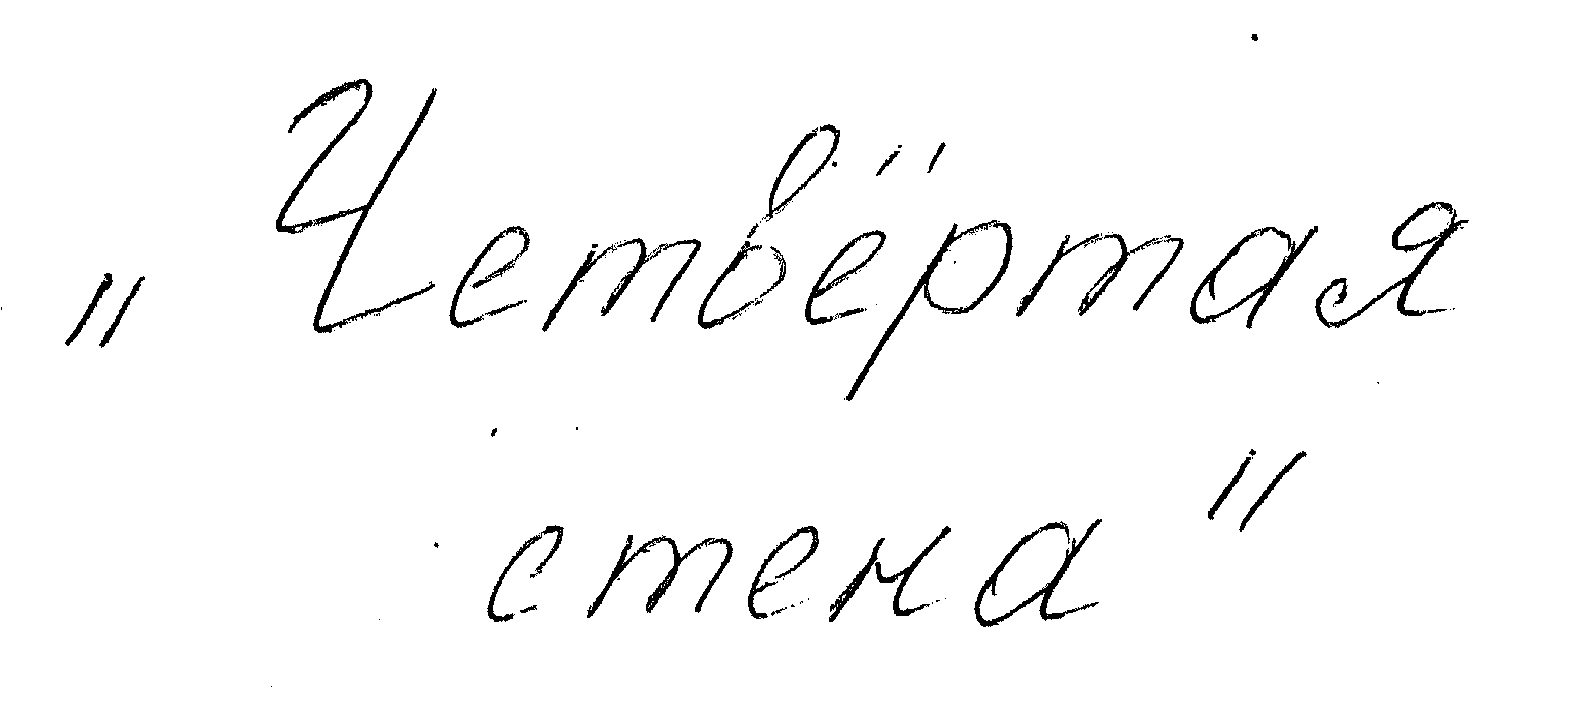 „Четвёртая
стена"